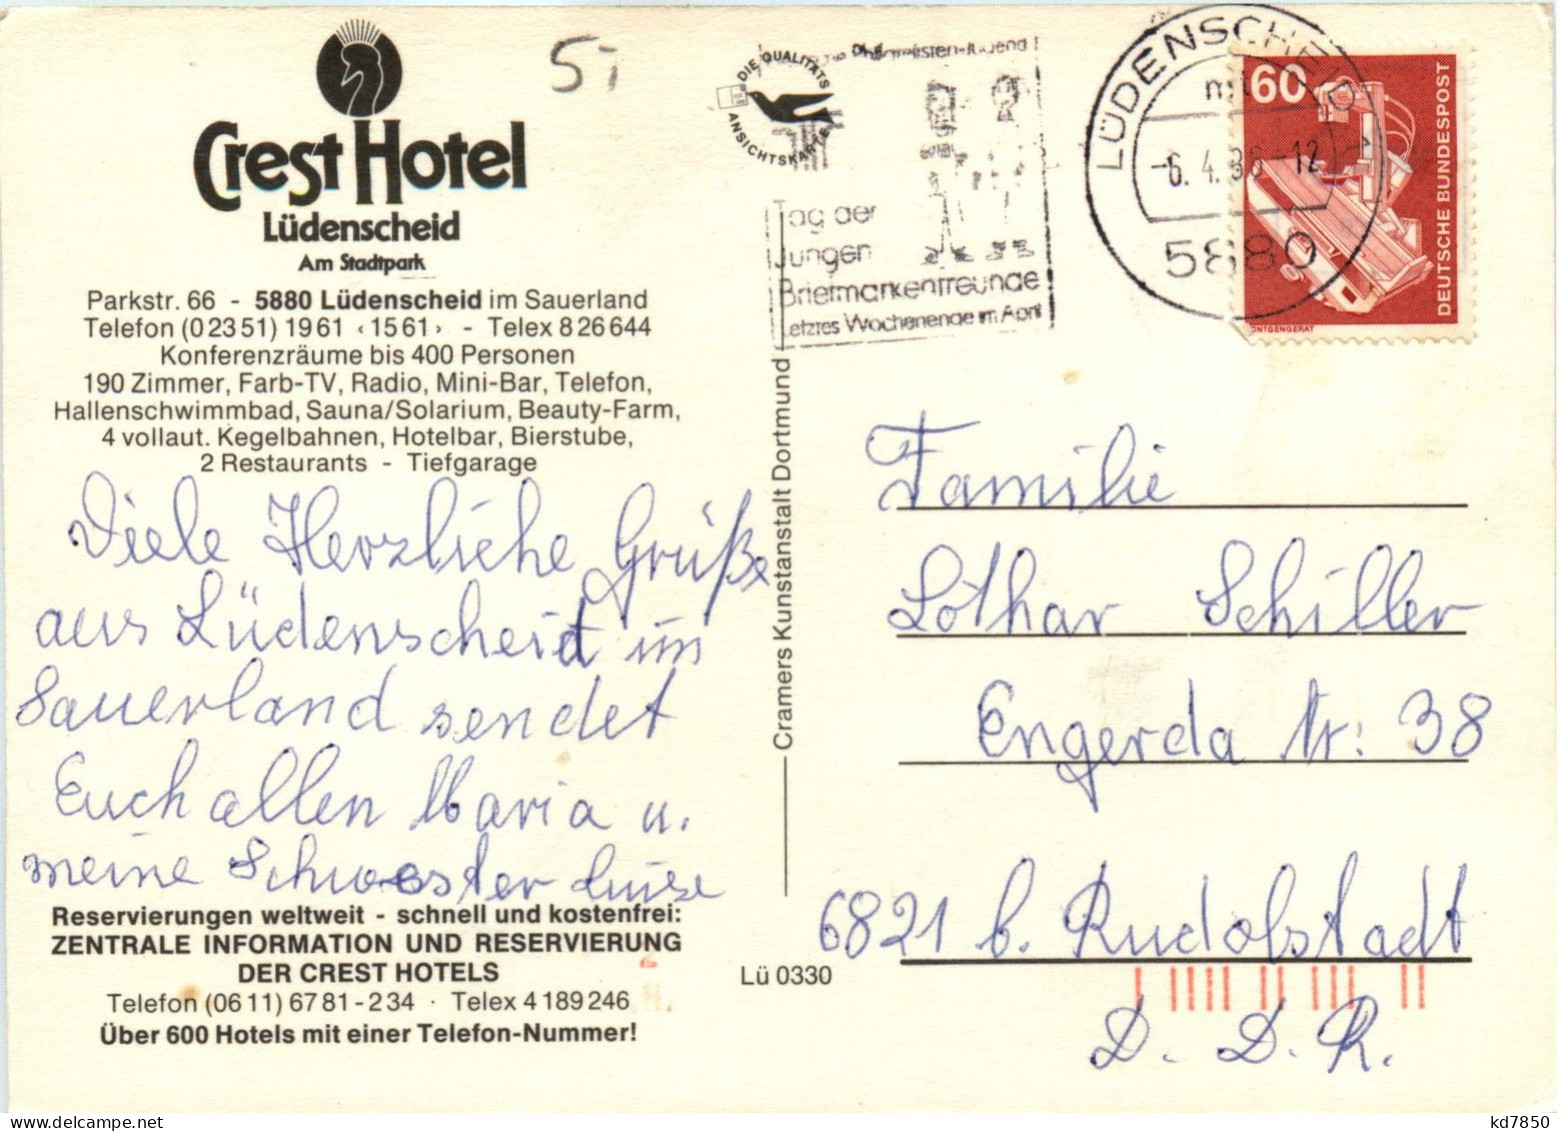 Crest Hotel
Lüdenscheid
Am Stadtpark
Parkstr. 66 - 5880 Lüdenscheid im Sauerland
Telefon (0 23 51) 19 61 ‹ 15 61 › - Telex 8 26 644
Konferenzräume bis 400 Personen
190 Zimmer, Farb-TV, Radio, Mini-Bar, Telefon,
Hallenschwimmbad, Sauna/Solarium, Beauty-Farm,
4 vollaut. Kegelbahnen, Hotelbar, Bierstube,
2 Restaurants - Tiefgarage
Viele Herzliche Grüße
aus Lüdenscheid im
Sauerland sendet
Euch allen Maria u.
meine Schwester Luise
Reservierungen weltweit - schnell und kostenfrei:
ZENTRALE INFORMATION UND RESERVIERUNG
DER CREST HOTELS
Telefon (06 11) 67 81 - 234 · Telex 4 189 246
Über 600 Hotels mit einer Telefon-Nummer!
Cramers Kunstanstalt Dortmund
Lü 0330
DIE QUALITÄTS
ANSICHTSKARTE
Philatelisten-Jugend
Tag der
Jungen
Briefmarkenfreunde
Letztes Wochenende im April
LÜDENSCHEID 1
-6. 4. 86 - 12
5880
60
DEUTSCHE BUNDESPOST
Familie
Lothar Schiller
Engerda Nr: 38
6821 b. Rudolstadt
D. D. R.
kd7850